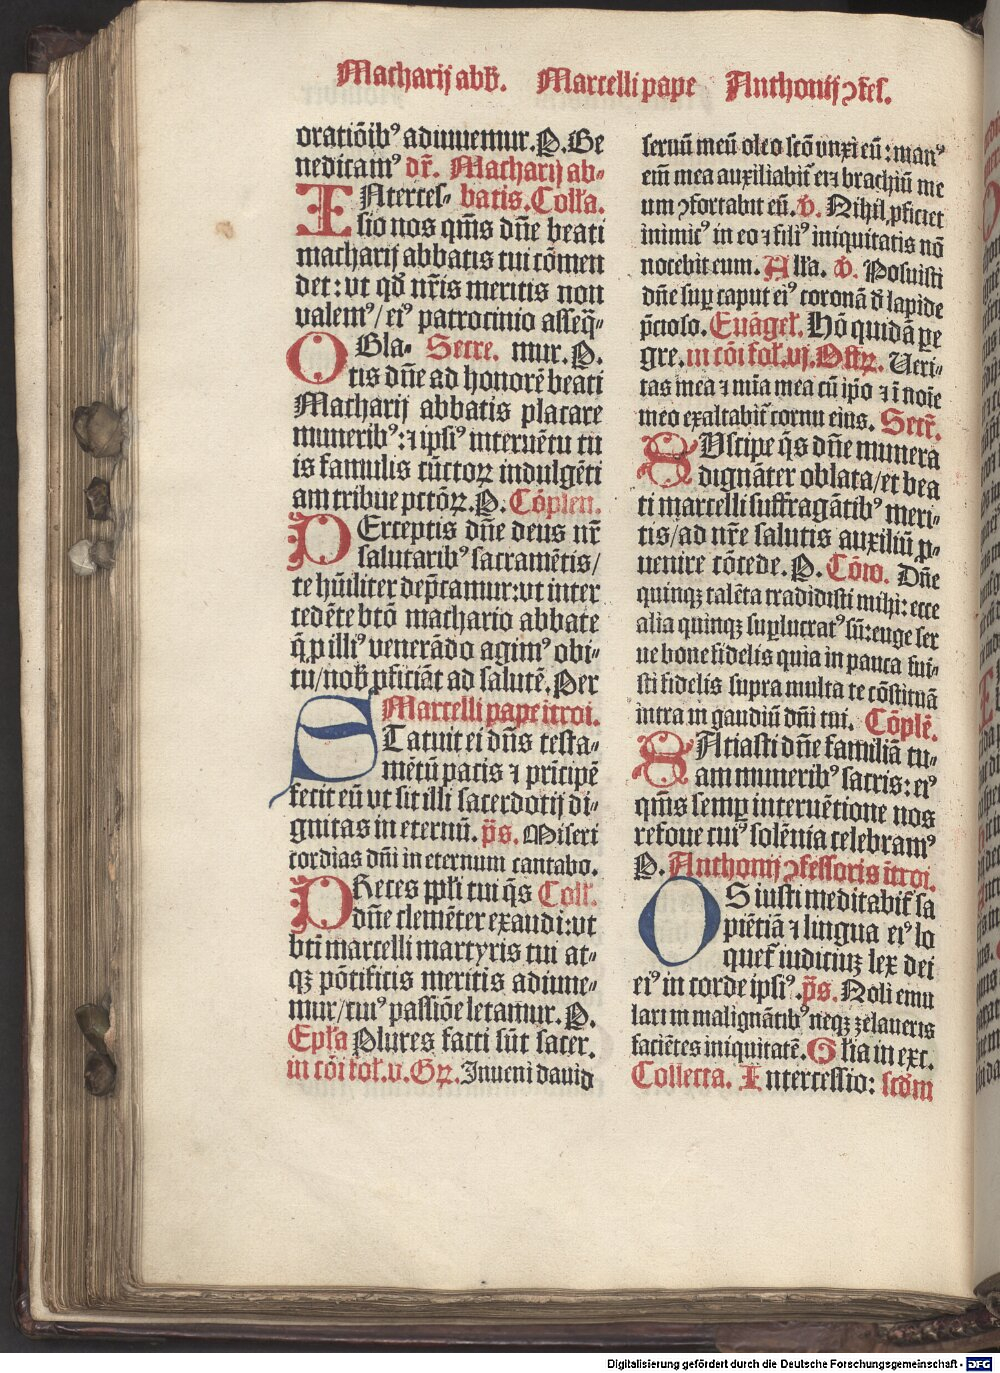 Macharij abb̄. Marcelli pape Anthonij ꝯfes.
oratiōib⁹ adiuuemur. P. Be
nedicam⁹ dr̄. Macharij ab⸗
INterces⸗ batis. Coll'a.
sio nos qm̄s dn̄e beati
macharij abbatis tui cōmen
det: vt qd̄ nr̄is meritis non
valem⁹/ ei⁹ patrocinio asseq̄⸗
OBla⸗ Secre. mur. P.
tis dn̄e ad honorē beati
Macharij abbatis placare
munerib⁹: ⁊ ipsi⁹ interuētu tu
is famulis cūctoꝝ indulgēti
am tribue pctōꝝ. P. Cōplen.
PErceptis dn̄e deus nr̄
salutarib⁹ sacramētis/
te hūiliter dep̄camur: vt inter
cedēte btō machario abbate
q̄ ꝓ illi⁹ venerādo agim⁹ obi⸗
tu/ nob̄ ꝓficiāt ad salutē. Per
Marcelli pape itroi.
STatuit ei dn̄s testa⸗
mētū pacis ⁊ prīcipē
fecit eū vt sit illi sacerdotij di⸗
gnitas in eternū. p̄s. Miseri
cordias dn̄i in eternum cantabo.
PReces ppl'i tui q̄s Coll'.
dn̄e clemēter exaudi: vt
bt̄i marcelli martyris tui at⸗
qꝫ pōtificis meritis adiuue⸗
mur/ cui⁹ passiōe letamur. P.
Epl'a Plures facti sūt sacer.
in cōi fol'. v. Gꝝ. Inueni dauid
seruū meū oleo scō vnxi eū: man⁹
em̄ mea auxiliabit̄ ei ⁊ brachiū me
um ꝯfortabit eū. v̄. Nihil ꝓficiet
inimic⁹ in eo ⁊ fili⁹ iniquitatis nō
nocebit eum. All'a. v̄. Posuisti
dn̄e suꝑ caput ei⁹ coronā d̄ lapide
p̄cioso. Euāgel'. Hō quidā ꝑe
gre. in cōi fol'. vj. Offꝝ. Ueri⸗
tas mea ⁊ mīa mea cū ip̄o ⁊ ī noīe
meo exaltabit̄ cornu eius. Secr̄.
SUscipe q̄s dn̄e munera
dignāter oblata/ et bea
ti marcelli suffragātib⁹ meri⸗
tis/ ad nr̄e salutis auxiliū ꝓ⸗
uenire cōcede. P. Cōio. Dn̄e
quinqꝫ talēta tradidisti mihi: ecce
alia quinqꝫ suꝑlucrat⁹ sū: euge ser
ue bone fidelis quia in pauca fui⸗
sti fidelis supra multa te cōstituā
intra in gaudiū dn̄i tui. Cōplē.
SAtiasti dn̄e familiā tu⸗
am munerib⁹ sacris: ei⁹
qm̄s semꝑ interuētione nos
refoue cui⁹ solēnia celebram⁹
P. Anthonij ꝯfessoris ītroi.
OS iusti meditabit̄ sa
piētiā ⁊ lingua ei⁹ lo
quet̄ iudiciuꝫ lex dei
ei⁹ in corde ipsi⁹. p̄s. Noli emu
lari in malignātib⁹ neqꝫ zelaueris
faciētes iniquitatē. Gl'ia in exc.
Collecta. Intercessio: scdm̄
Digitalisierung gefördert durch die Deutsche Forschungsgemeinschaft - DFG